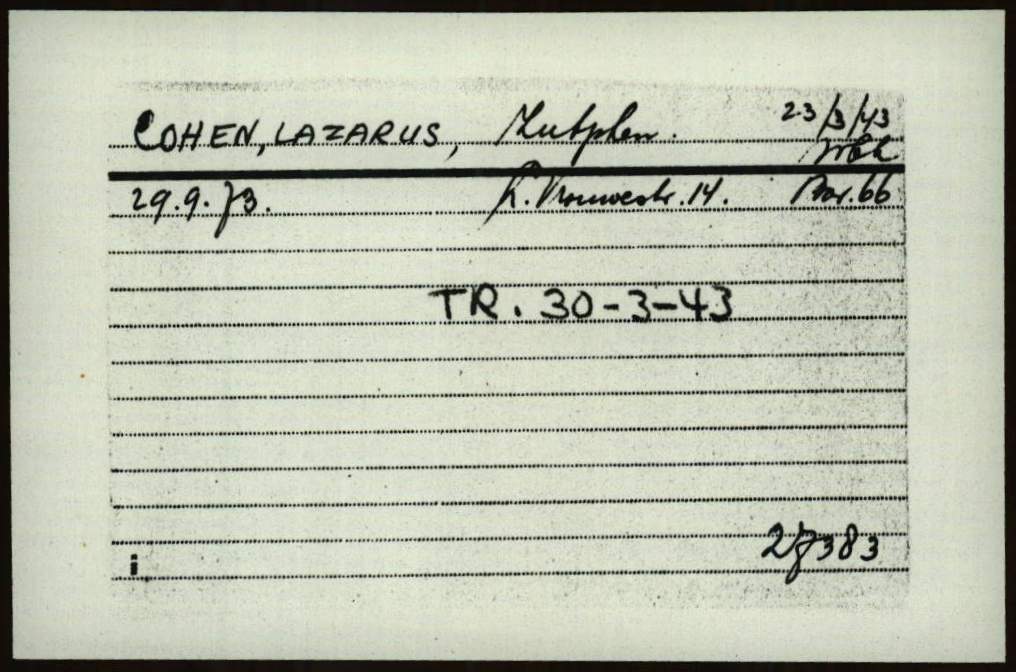 COHEN, LAZARUS, Zutphen. 23/3/43
Wbk
29.9.73. K. Vrouwestr. 14. Bar. 66
TR. 30-3-43
i 27383